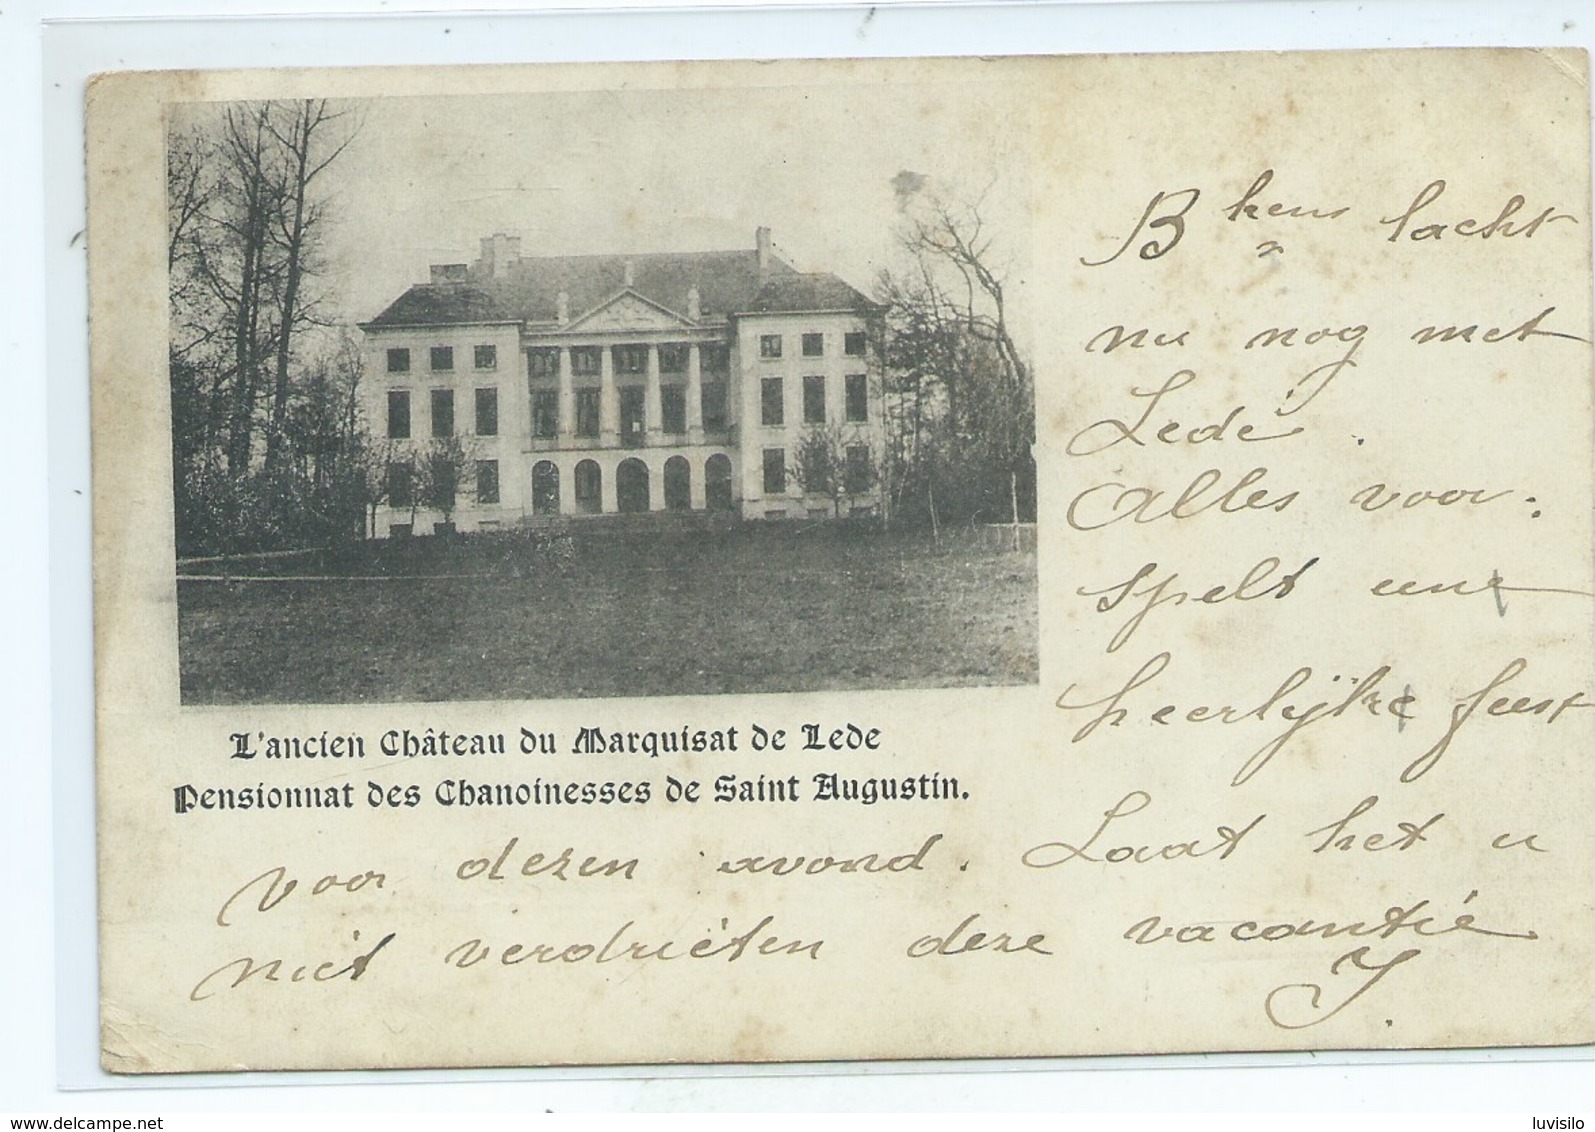 L'ancien Château du Marquisat de Lede
Pensionnat des Chanoinesses de Saint Augustin.
lacht
nu nog met
Lede.
Alles voor:
spelt een
heerlijk feest
voor dezen avond. Laat het u
niet verdrieten deze vacantie
J.
delcampe.net
luvisilo